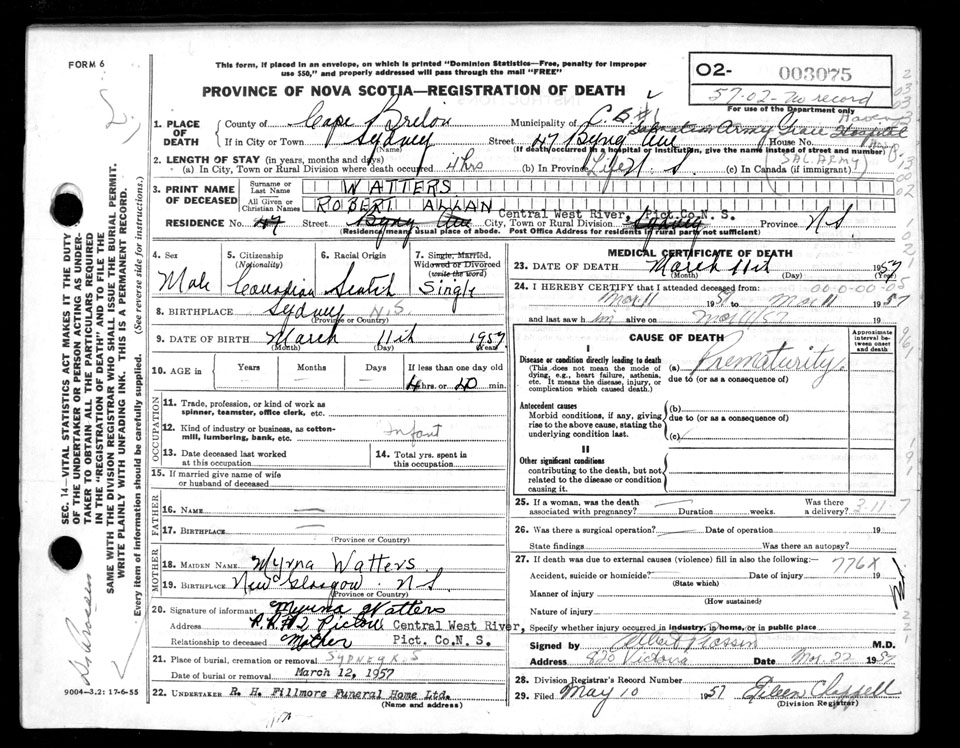 FORM 6
This form, if placed in an envelope, on which is printed "Dominion Statistics—Free, penalty for improper
use $50," and properly addressed will pass through the mail "FREE"
O2- 003075
57-02- No record
For use of the Department only
PROVINCE OF NOVA SCOTIA—REGISTRATION OF DEATH
1. PLACE OF DEATH
County of Cape Breton Municipality of C. B.
If in City or Town Sydney Street 47 Byng Ave House No.
(Name) (If death occurred in a hospital or institution, give the name instead of street and number)
Salvation Army Grace Haven Hospital
(SAL. ARMY
2. LENGTH OF STAY (in years, months and days)
(a) In City, Town or Rural Division where death occurred 4 hrs (b) In Province Life N. S. (c) In Canada (if immigrant)
3. PRINT NAME OF DECEASED
Surname or Last Name WATTERS
All Given or Christian Names ROBERT ALLAN
Central West River, Pict.Co.N.S.
RESIDENCE No. 47 Street Byng Ave City, Town or Rural Division Sydney Province N.S
(Residence means usual place of abode. Post Office Address for residents in rural parts not sufficient)
4. Sex Male
5. Citizenship (Nationality) Canadian
6. Racial Origin Scotch
7. Single, Married, Widowed or Divorced (write the word) Single
8. BIRTHPLACE Sydney N.S.
(Province or Country)
9. DATE OF BIRTH March 11th 1957
(Month) (Day) (Year)
10. AGE in Years Months Days If less than one day old
4 hrs. or 40 min.
OCCUPATION
11. Trade, profession, or kind of work as spinner, teamster, office clerk, etc.
12. Kind of industry or business, as cotton-mill, lumbering, bank, etc. infant
13. Date deceased last worked at this occupation
14. Total yrs. spent in this occupation
15. If married give name of wife or husband of deceased
FATHER
16. NAME —
17. BIRTHPLACE —
(Province or Country)
MOTHER
18. MAIDEN NAME Myrna Watters
19. BIRTHPLACE New Glasgow N S
(Province or Country)
20. Signature of informant Myrna Watters
Address R.R#2 Pictou Central West River,
Relationship to deceased Mother Pict. Co.N.S.
21. Place of burial, cremation or removal SYDNEY N.S
Date of burial or removal March 12, 1957
22. UNDERTAKER R. H. Fillmore Funeral Home Ltd.
(Name and address)
9004—3.2: 17-6-55
MEDICAL CERTIFICATE OF DEATH
23. DATE OF DEATH March 11th 1957
(Month) (Day) (Year)
24. I HEREBY CERTIFY that I attended deceased from
Mar 11 1957 to Mar 11 1957
and last saw him alive on Mar 11/57
CAUSE OF DEATH
Approximate interval between onset and death
I
Disease or condition directly leading to death
(This does not mean the mode of dying, e.g., heart failure, asthenia, etc. It means the disease, injury, or complication which caused death.)
(a) Prematurity.
due to (or as a consequence of)
Antecedent causes
Morbid conditions, if any, giving rise to the above cause, stating the underlying condition last.
(b)
due to (or as a consequence of)
(c)
II
Other significant conditions
contributing to the death, but not related to the disease or condition causing it.
25. If a woman, was the death associated with pregnancy? — Duration weeks. Was there a delivery? 3-11-7
26. Was there a surgical operation? — Date of operation 19
State findings Was there an autopsy?
27. If death was due to external causes (violence) fill in also the following: 776X
Accident, suicide or homicide? Date of injury 19
(State which)
Manner of injury
(How sustained)
Nature of injury
Specify whether injury occurred in industry, in home, or in public place
Signed by M.D.
Address 920 Victoria Date Mar. 22 1957
28. Division Registrar's Record Number
29. Filed May 10 1957 Eileen Chappell
(Division Registrar)
SEC. 14—VITAL STATISTICS ACT MAKES IT THE DUTY
OF THE UNDERTAKER OR PERSON ACTING AS UNDER-
TAKER TO OBTAIN ALL THE PARTICULARS REQUIRED
IN THE "REGISTRATION OF DEATH" AND TO FILE THE
SAME WITH THE DIVISION REGISTRAR WHO SHALL ISSUE THE BURIAL PERMIT.
WRITE PLAINLY WITH UNFADING INK. THIS IS A PERMANENT RECORD.
Every item of information should be carefully supplied. (See reverse side for instructions.)